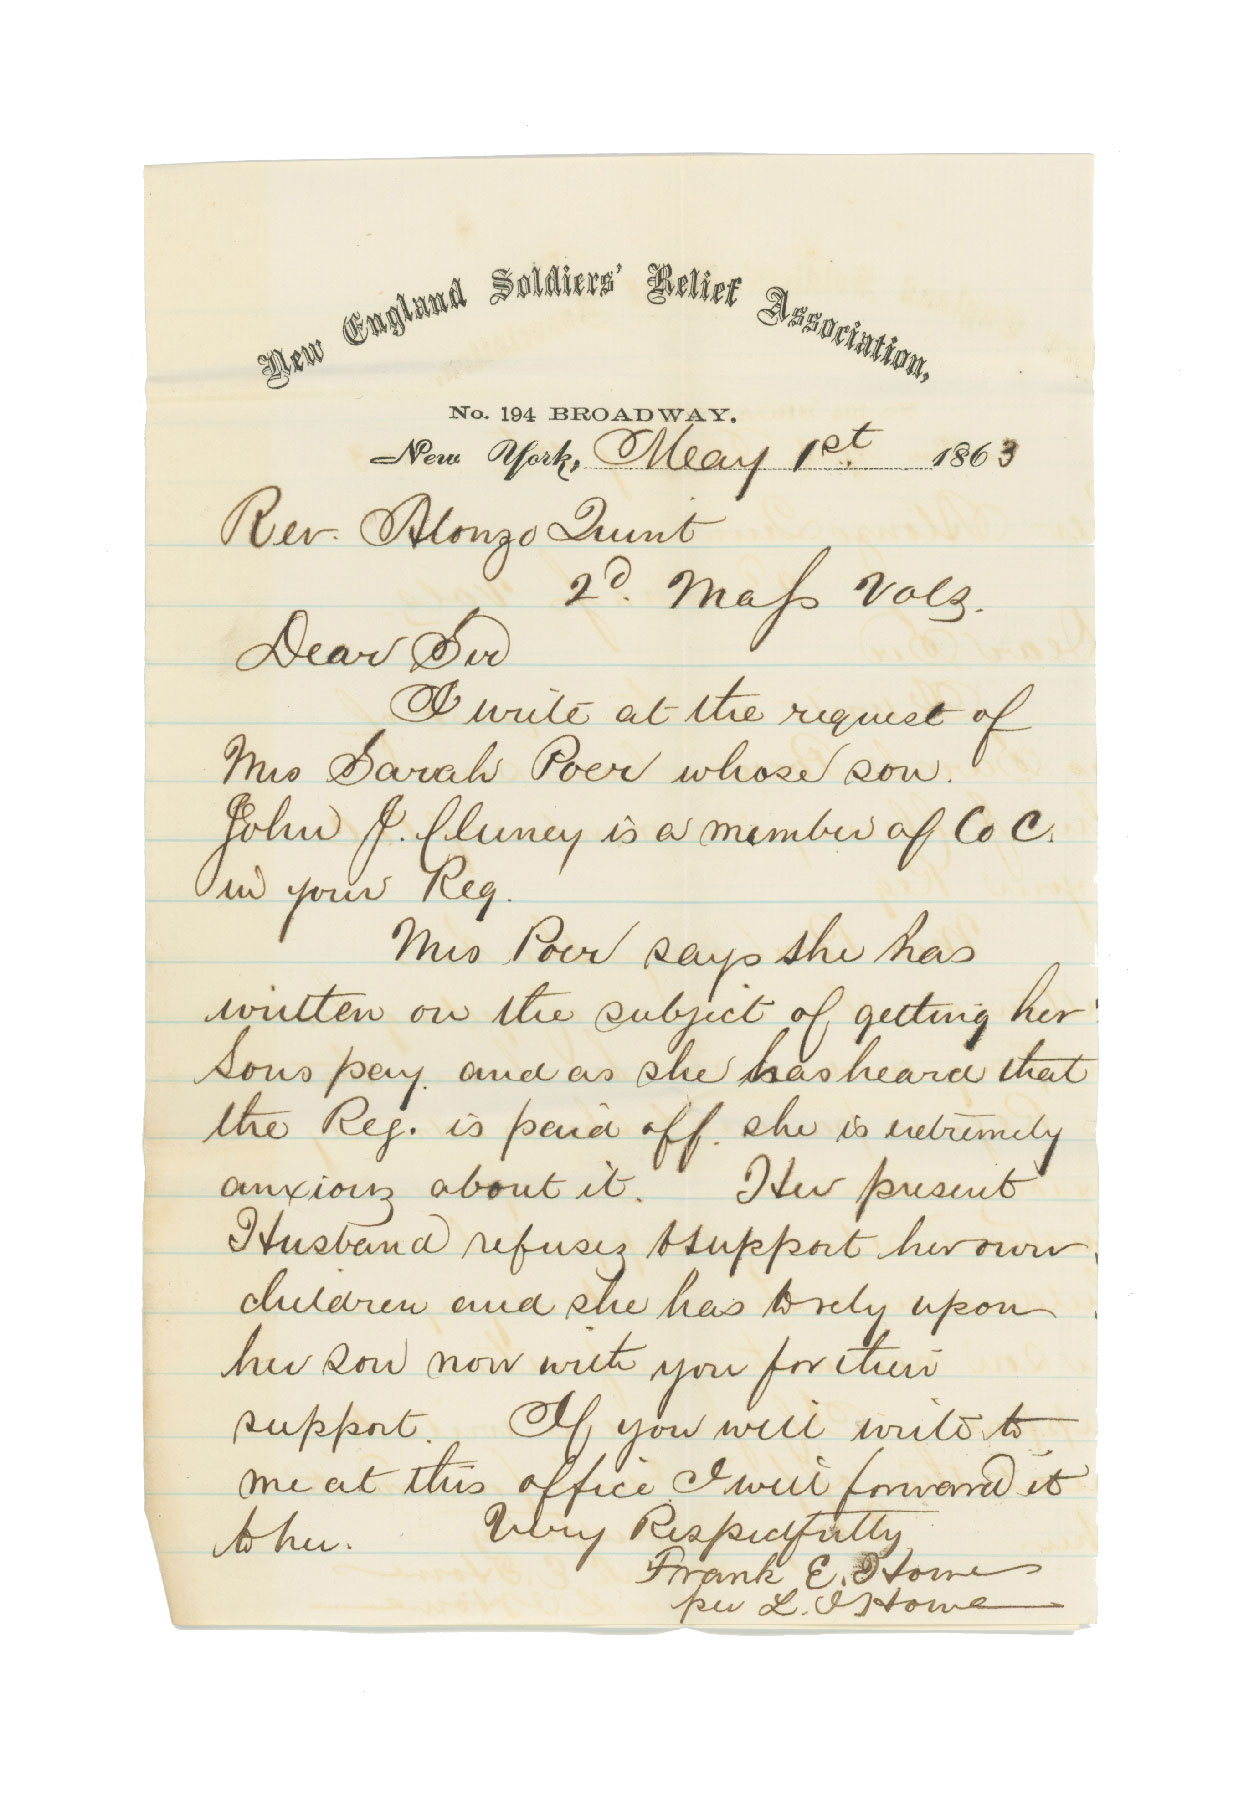 New England Soldiers' Relief Association,
No. 194 BROADWAY.
New York, May 1st. 1863
Rev. Alonzo Quint
2d. Mass Vols.
Dear Sir
I write at the request of
Mrs Sarah Poer whose son.
John J. Cluney is a member of Co C.
in your Reg.
Mrs Poer says she has
written on the subject of getting her
Sons pay. and as she has heard that
the Reg. is paid off. she is extremely
anxious about it. Her present
Husband refuses to support her own
children and she has to rely upon
her son now with you for their
support. If you will write to
me at this office I will forward it
to her. Very Respectfully
Frank E. Howe
per L. I Howe